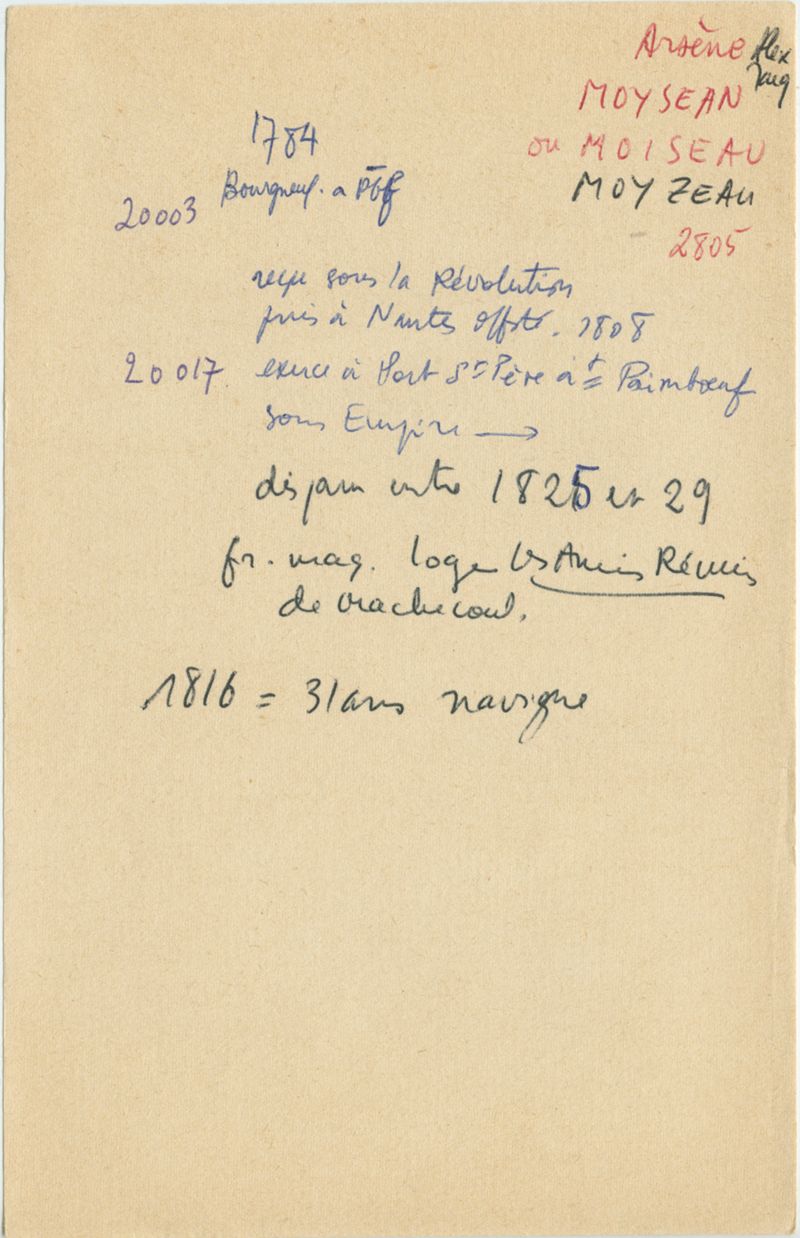 Arsène Alex
Jacq
MOYSEAN
ou MOISEAU
MOYZEAU
2805
1784
Bourgneuf. a Pbf
20003
reçu sous la Révolution
puis à Nantes offsté. 1808
20017 exerce à Port St Père at Paimbœuf
sous Empire →
disparu entre 1825 et 29
fr. maç. loge Les Amis Réunis
de Machecoul.
1816 = 31 ans navigue